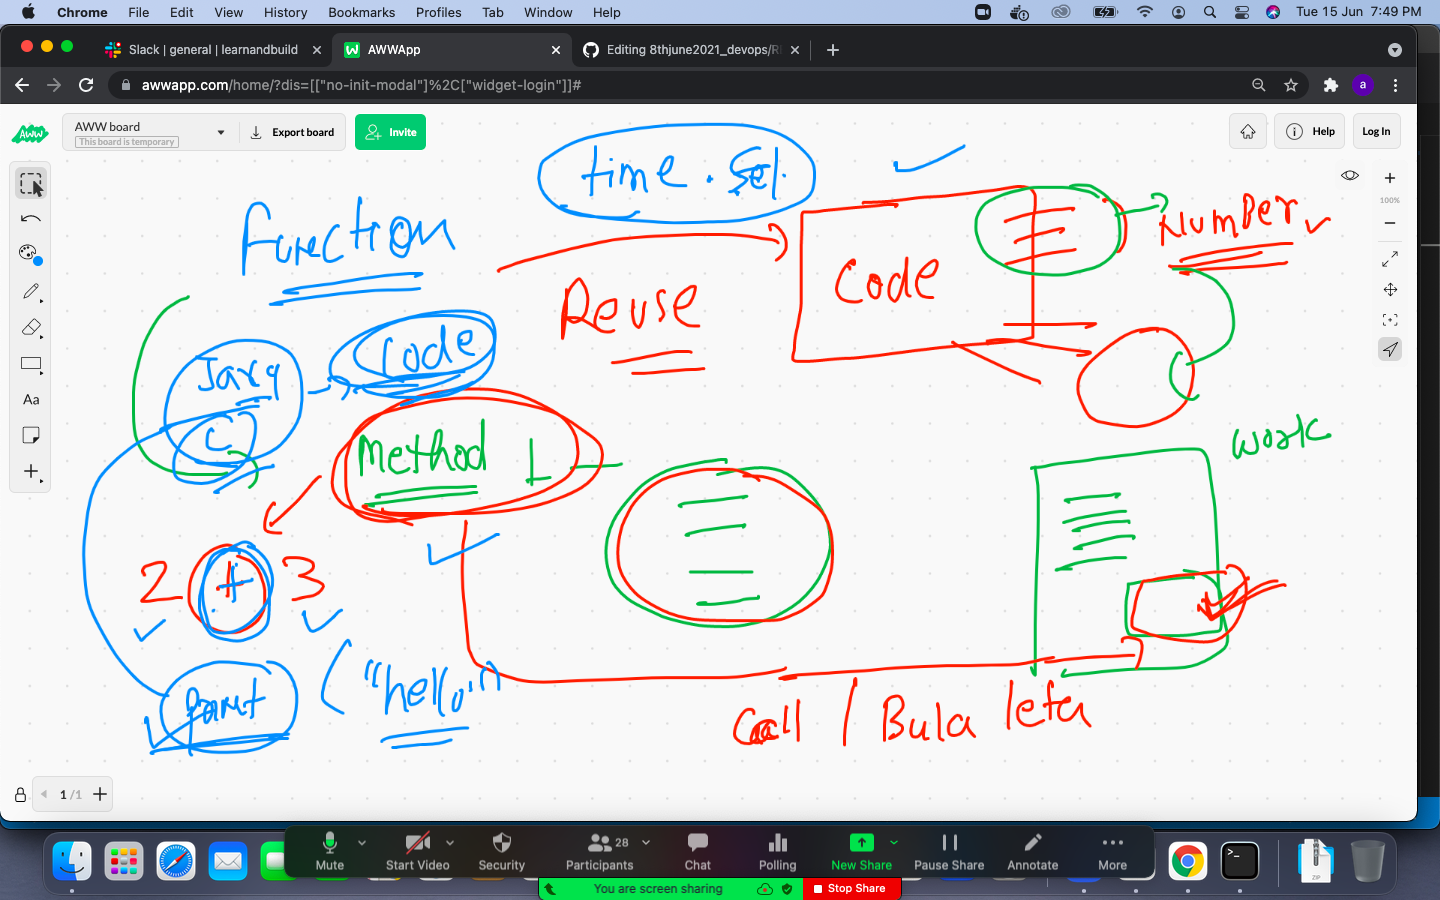 Chrome File Edit View History Bookmarks Profiles Tab Window Help Tue 15 Jun 7:49 PM
Slack | general | learnandbuild
AWWApp
Editing 8thjune2021_devops/R
awwapp.com/home/?dis=[["no-init-modal"]%2C["widget-login"]]#
a
AWW
AWW board
This board is temporary
Export board
Invite
Help
Log In
100%
Aa
time.
function
Reuse
Code
Number
Code
C
Method
work
2 + 3
("hello")
Call / Bula leta
1/1
Mute
Start Video
Security
28
Participants
Chat
Polling
New Share
Pause Share
Annotate
More
You are screen sharing
Stop Share
ZIP